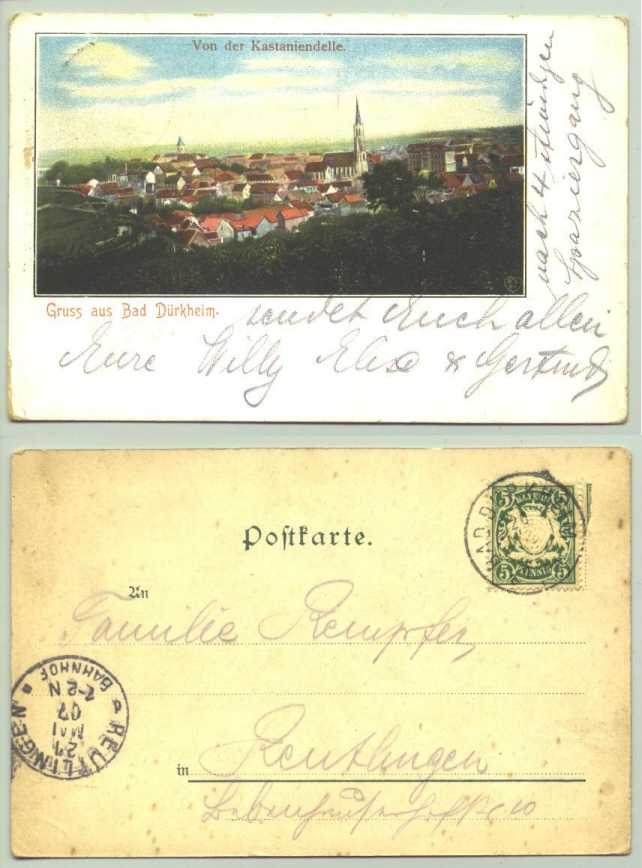 Von der Kastaniendelle.
nach 4 stündigen
Spaziergang
Gruss aus Bad Dürkheim.
sendet Euch allen
Eure Willy Elise & Gertrud
Postkarte.
5 5
BAYERN
PFENNIG
5 5
BAD DÜRKHEIM
An
Familie Rempfer,
REUTLINGEN
BAHNHOF
A
27
MAI
07
N
in Reutlingen